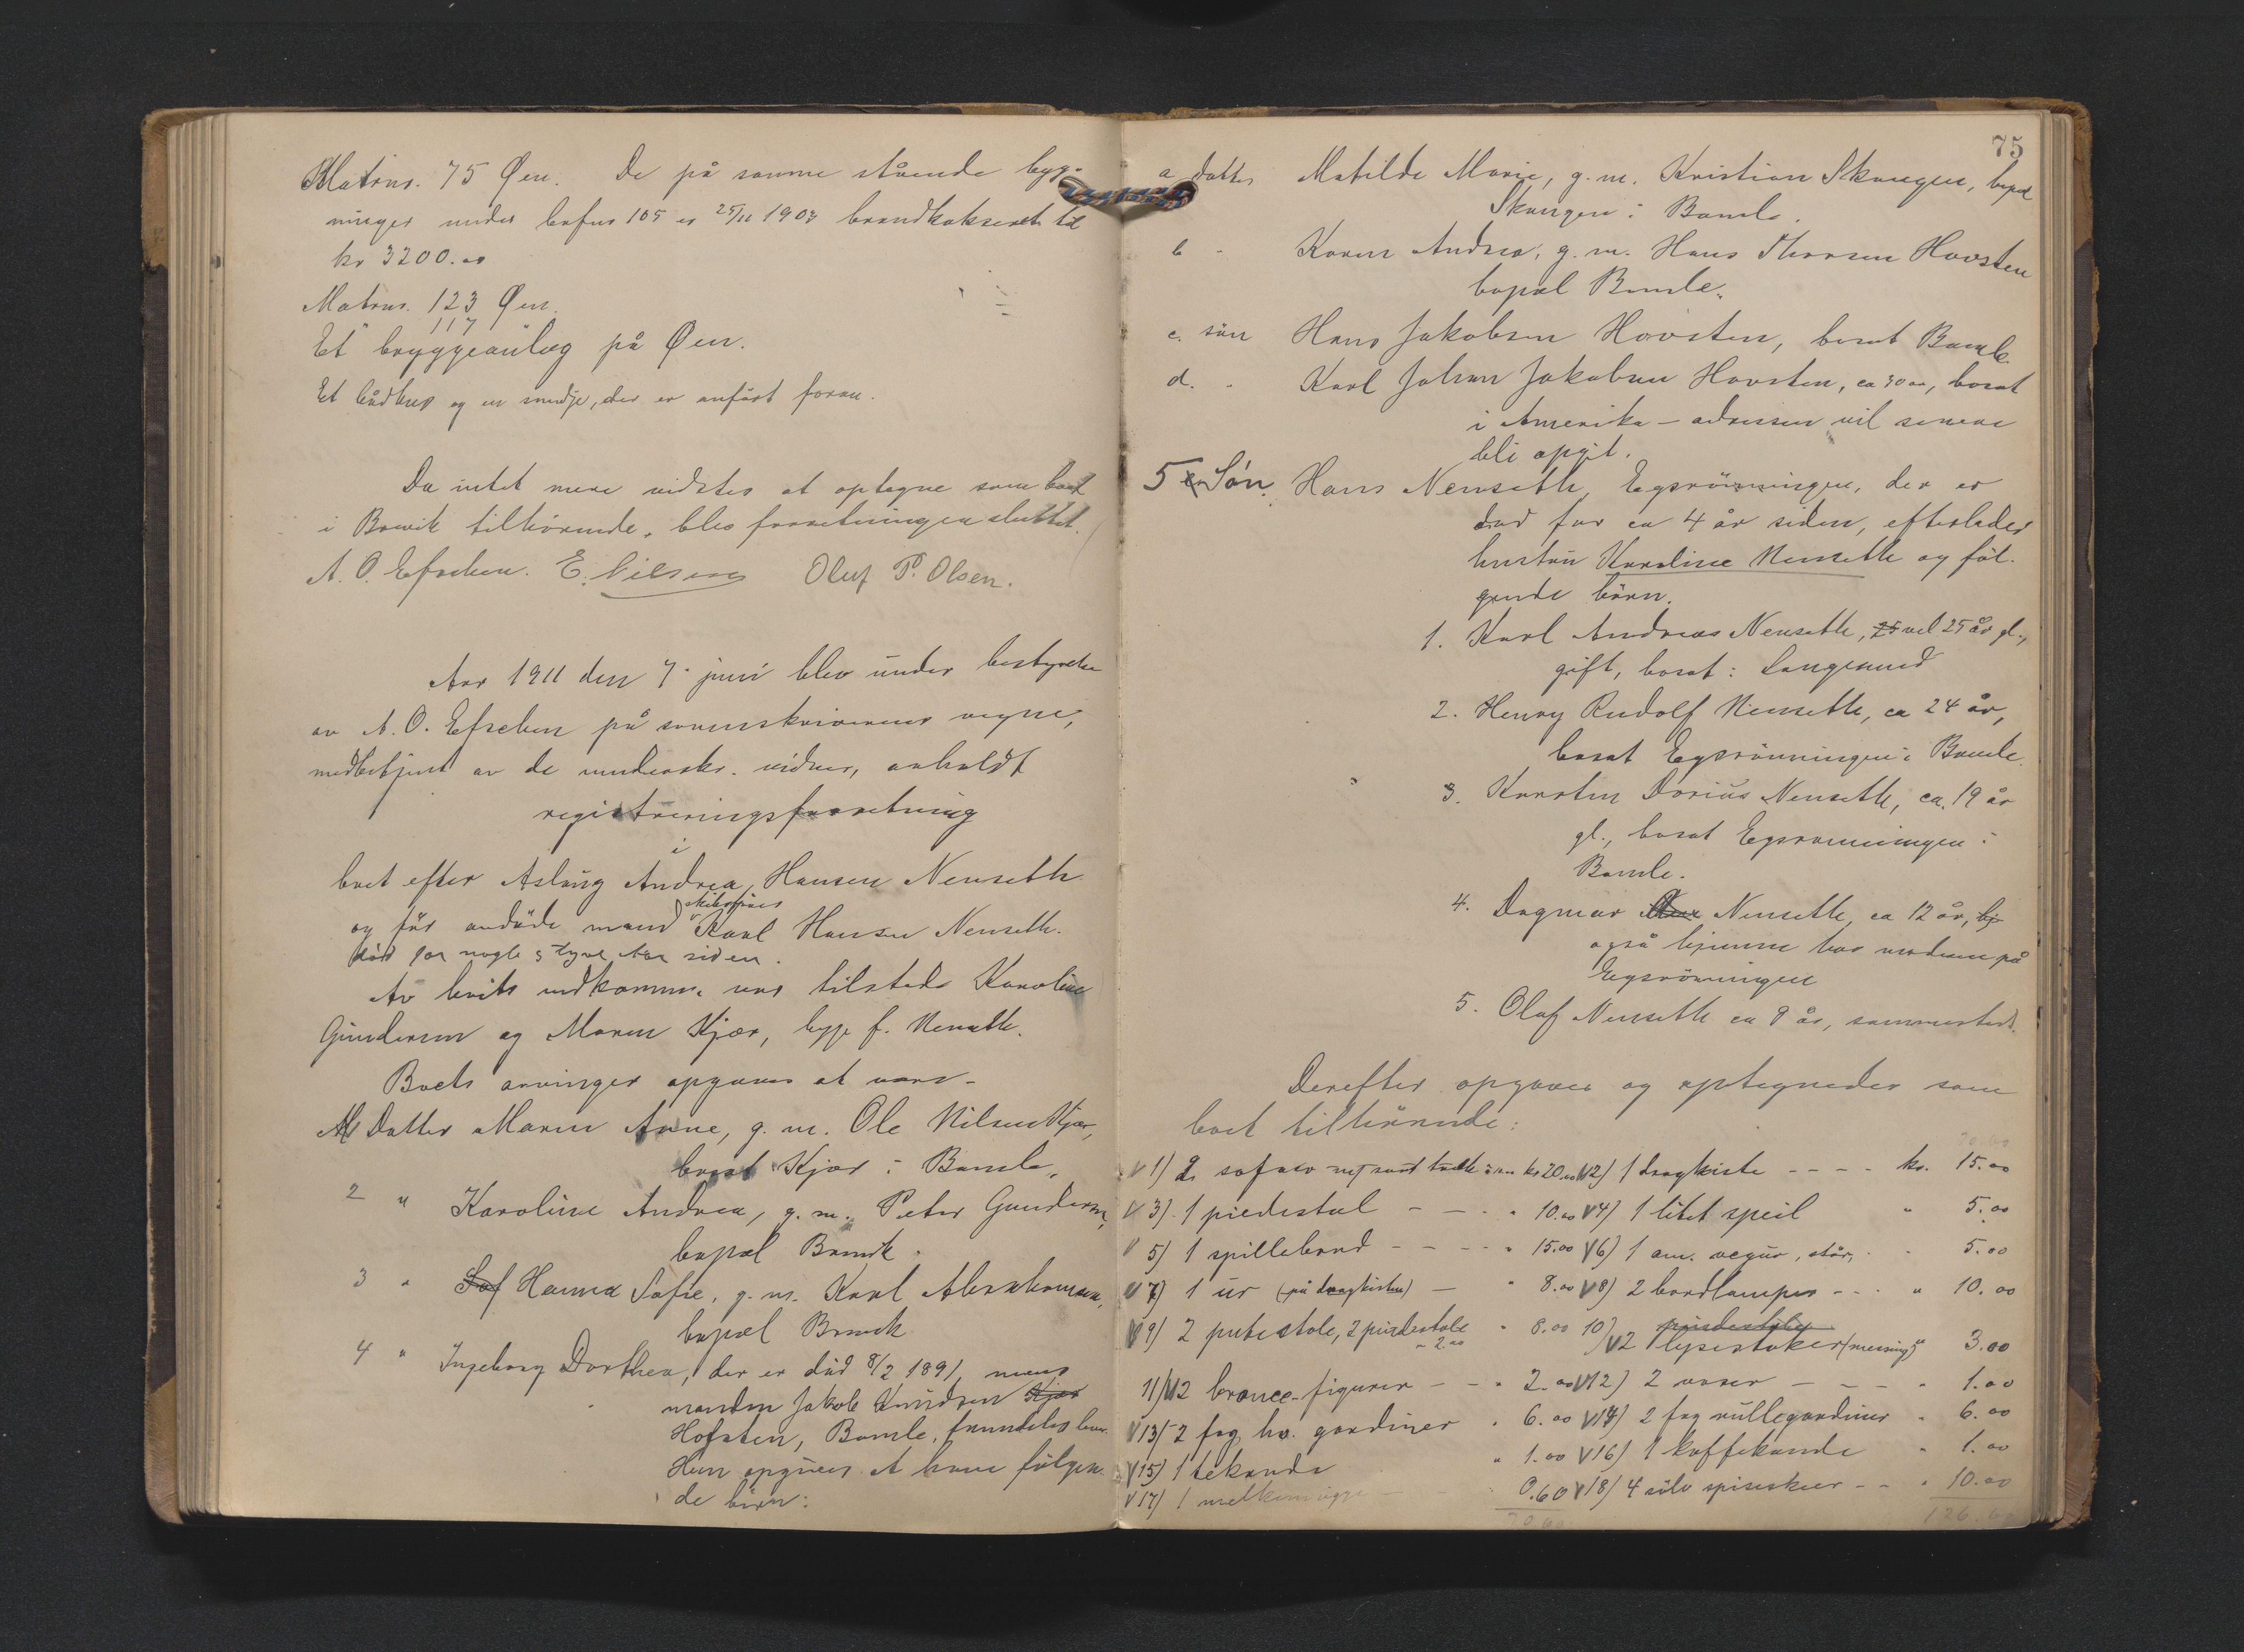 Matrnr. 75 Øen. De på samme stående byg-
ninger under løbnr 105 er 25/11 1903 brandtakseret til
kr 3200.00
Matrnr. 123 Øen.
117
Et bryggeanlæg på Øen.
Et bådhus og en smedje, der er anført foran.
Da intet mere vidstes at optegne som boet
i Brevik tilhørende, blev forretningen sluttet.
A. O. Efseben. E. Nilsen Oluf P. Olsen.
Aar 1911 den 7. juni blev under bestyrelse
av A. O. Efseben på sorenskriverens vegne,
medbetjent av de undersskr. vidner, avholdt
registreringsforretning
i
boet efter Aslaug Andrea Hansen Nenseth
og før avdøde mand skibsfører Karl Hansen Nenseth.
død for nogle og tyve Aar siden.
Av boets vedkomm. var tilstede Karoline
Gundersen og Maren Kjær, begge f. Nenseth.
Boets arvinger opgaves at være -
1 Datter Maren Anne, g. m. Ole Nilsen Kjær,
bosat Kjær i Bamle,
2 " Karoline Andrea, g. m. Peter Gundersen,
bopæl Brevik.
3 " Sof Hanna Sofie, g. m. Karl Abrahamsen,
bopæl Brevik
4 " Ingeborg Dorthea, der er død 8/2 1891, mens
manden Jakob Knudsen Kjær
Hofsten, Bamle, fremdeles lever.
Hun opgives at have følgen-
de børn:
75
a datter Matilde Marie, g. m. Kristian Skaugen, bopæl
Skaugen i Bamle.
b - Karen Andrea, g. m. Hans Thorsen Hovsten
bopæl Bamle.
c. søn Hans Jakobsen Hovsten, bosat Bamle.
d. - Karl Johan Jakobsen Hovsten, ca 30 aar, bosat
i Amerika - adressen vil senere
bli opgit.
5 Søn. Hans Nenseth, Egsrönningen, der er
død for ca 4 år siden, efterlader
hustru Karoline Nenseth og føl-
gende børn.
1. Karl Andreas Nenseth, 25 vel 25 år gl.,
gift, bosat i Langesund
2. Henry Rudolf Nenseth, ca 24 år,
bosat Egsrönningen i Bamle.
3. Karsten Dorius Nenseth, ca. 19 år
gl., bosat Egsrönningen i
Bamle.
4. Dagmar Nenseth, ca 12 år, hj
også hjemme hos moderen på
Egsrönningen
5. Olaf Nenseth ca 8 år, sammesteds.
Derefter opgaves og optegnedes som
boet tilhørende:
V 1) 2 sofaer kr 20.00 V 2) 1 dragkiste - - - - kr. 15.00
V 3) 1 piedestal - - - " 10.00 V 4) 1 litet speil " 5.00
V 5) 1 spillebord - - - - " 15.00 V 6) 1 am. vægur, står, - - 5.00
V 7) 1 ur (på dragkisten) - " 8.00 V 8) 2 bordlamper - - - " 10.00
V 9) 2 putestole, 2 pindestole " 8.00 10) pindestole
" 2.00 V 2 lysestaker (messing) " 3.00
11) V 2 bronce-figurer - - " 2.00 V 12) 2 vaser - - - - " 1.00
V 13) 2 fag hv. gardiner " 6.00 V 14) 2 fag rullegardiner " 6.00
V 15) 1 tekande " 1.00 V 16) 1 kaffekande " 1.00
V 17) 1 melkemugge - " 0.60 V 18) 4 sølv spiseskeer - - " 10.00
70.60 126.60